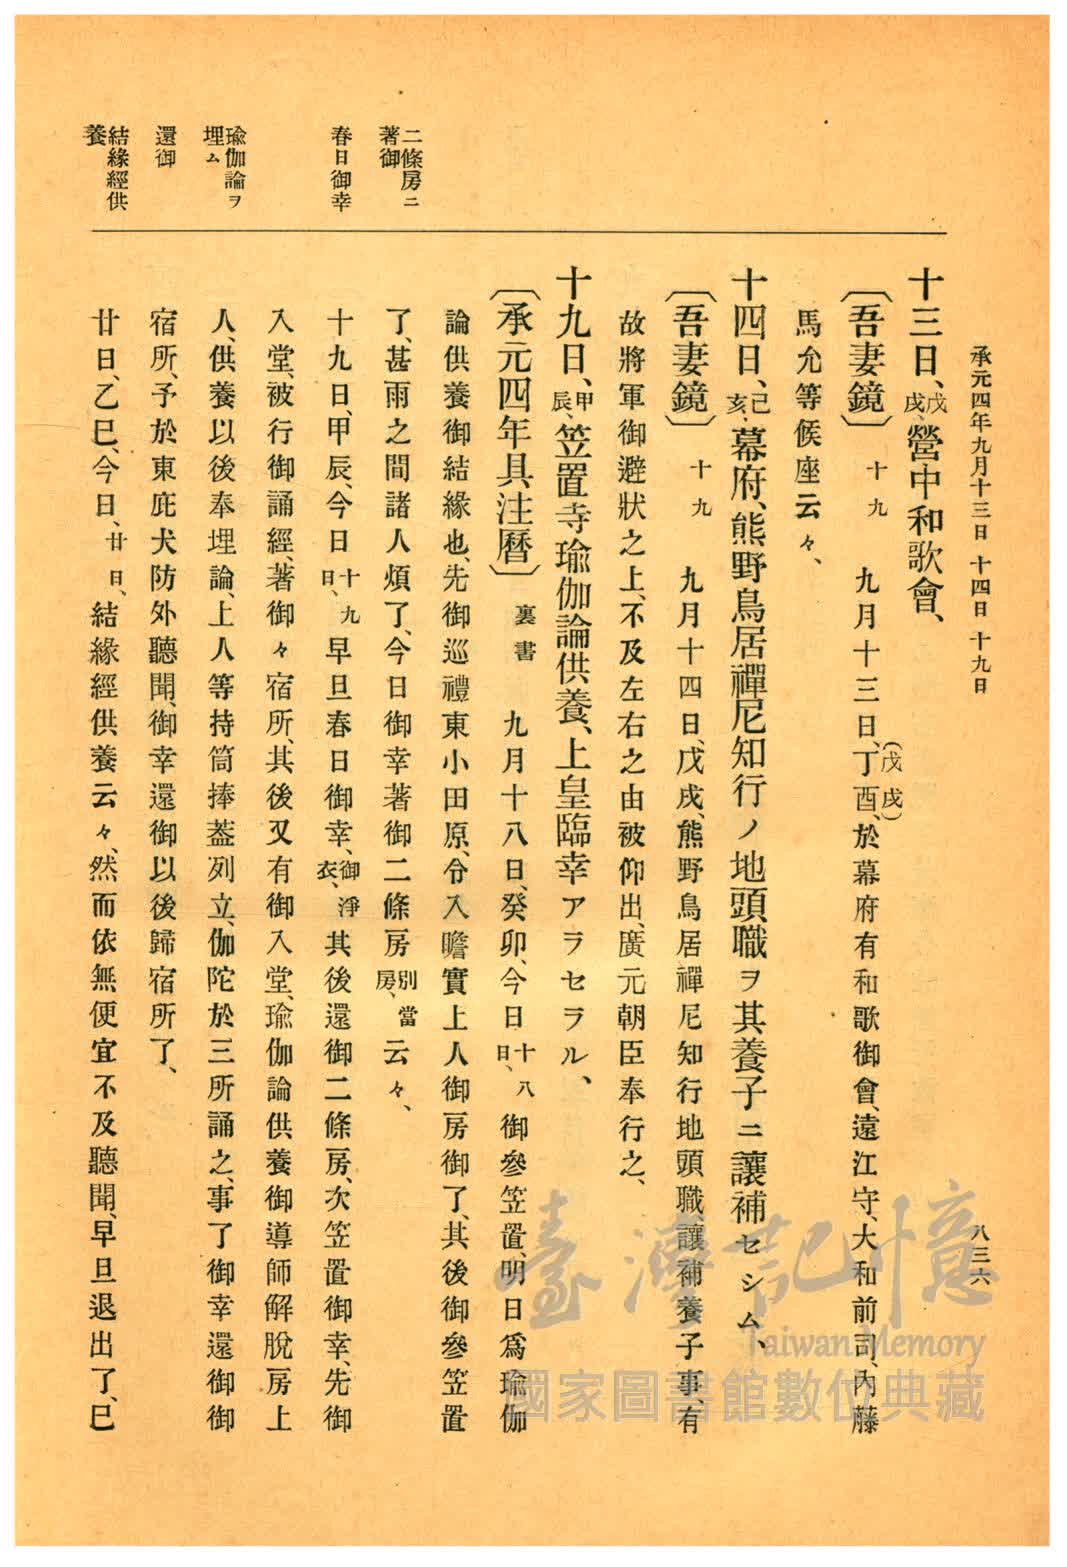 承元四年九月十三日 十四日 十九日
八三六
十三日、戊戌、營中和歌會、
〔吾妻鏡〕十九 九月十三日、丁酉、(戊戌)於幕府有和歌御會、遠江守、大和前司、內藤
馬允等候座云々、
十四日、己亥、幕府、熊野鳥居禪尼知行ノ地頭職ヲ其養子ニ讓補セシム、
〔吾妻鏡〕十九 九月十四日、戊戌、熊野鳥居禪尼知行地頭職、讓補養子事、有
故將軍御避狀之上、不及左右之由被仰出、廣元朝臣奉行之、
十九日、甲辰、笠置寺瑜伽論供養、上皇臨幸アラセラル、
〔承元四年具注曆〕裏書 九月十八日、癸卯、今日十八日、御參笠置、明日爲瑜伽
論供養御結緣也、先御巡禮東小田原、令入瞻實上人御房御了、其後御參笠置
了、甚雨之間諸人煩了、今日御幸著御二條房別當房、云々、
十九日、甲辰、今日十九日、早旦春日御幸、御淨衣、其後還御二條房、次笠置御幸、先御
入堂、被行御誦經、著御々宿所、其後又有御入堂、瑜伽論供養御導師解脫房上
人、供養以後奉埋論、上人等持筒捧蓋列立、伽陀於三所誦之、事了御幸還御御
宿所、予於東庇犬防外聽聞、御幸還御以後歸宿所了、
廿日、乙巳、今日、廿日、結緣經供養云々、然而依無便宜不及聽聞、早旦退出了、巳
二條房ニ
著御
春日御幸
瑜伽論ヲ
埋ム
還御
結緣經供
養
臺灣記憶
Taiwan Memory
國家圖書館數位典藏